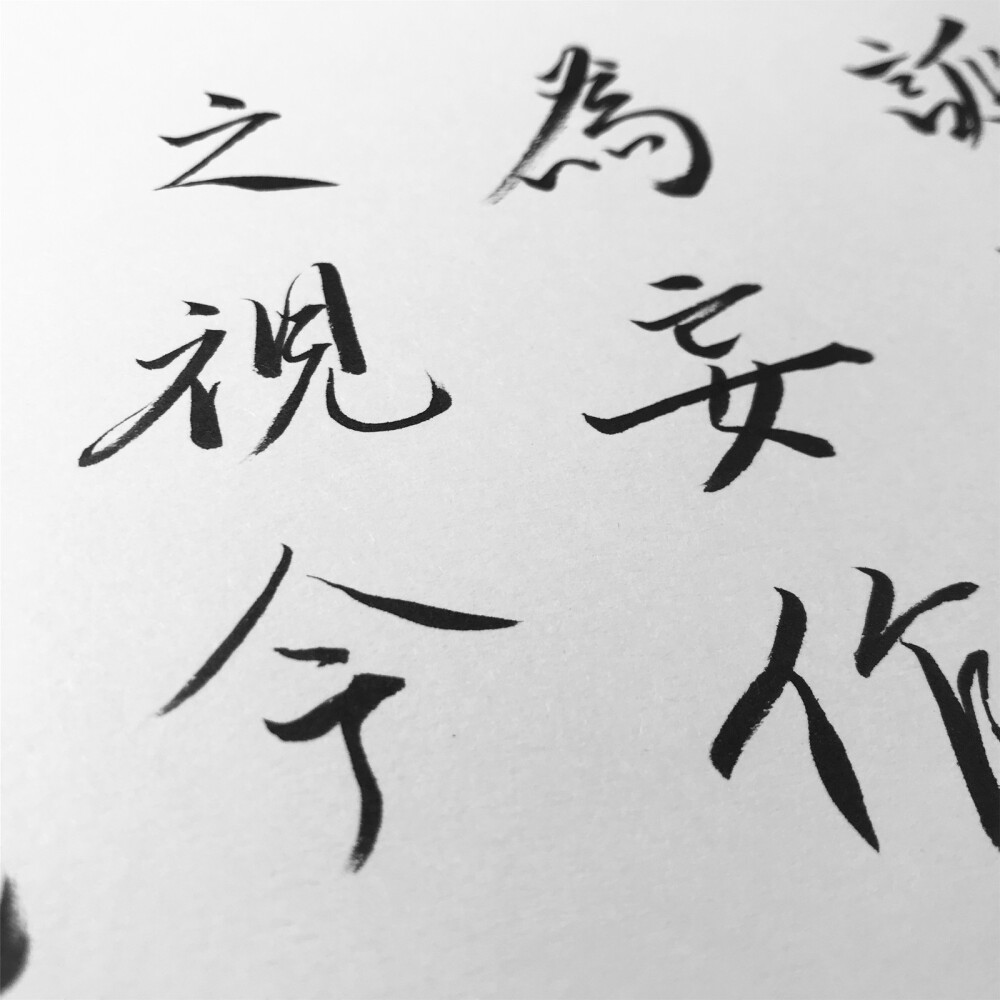 為妄作
之視今